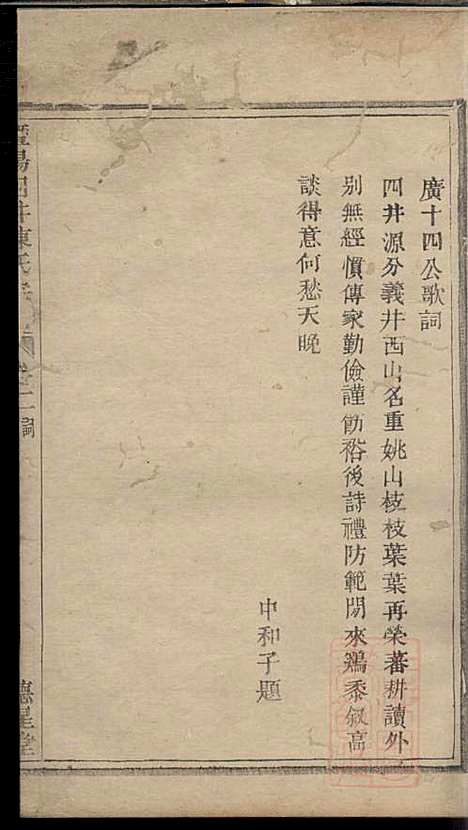 廣十四公歌詞
四井源分義井西山名重姚山枝枝葉葉再榮蕃耕讀外
別無經慣傳家勤儉謹飭裕後詩禮防範閒來鷄黍叙高
談得意何愁天晚
中和子題
陽四井陳氏宗 卷二 詞 德星堂